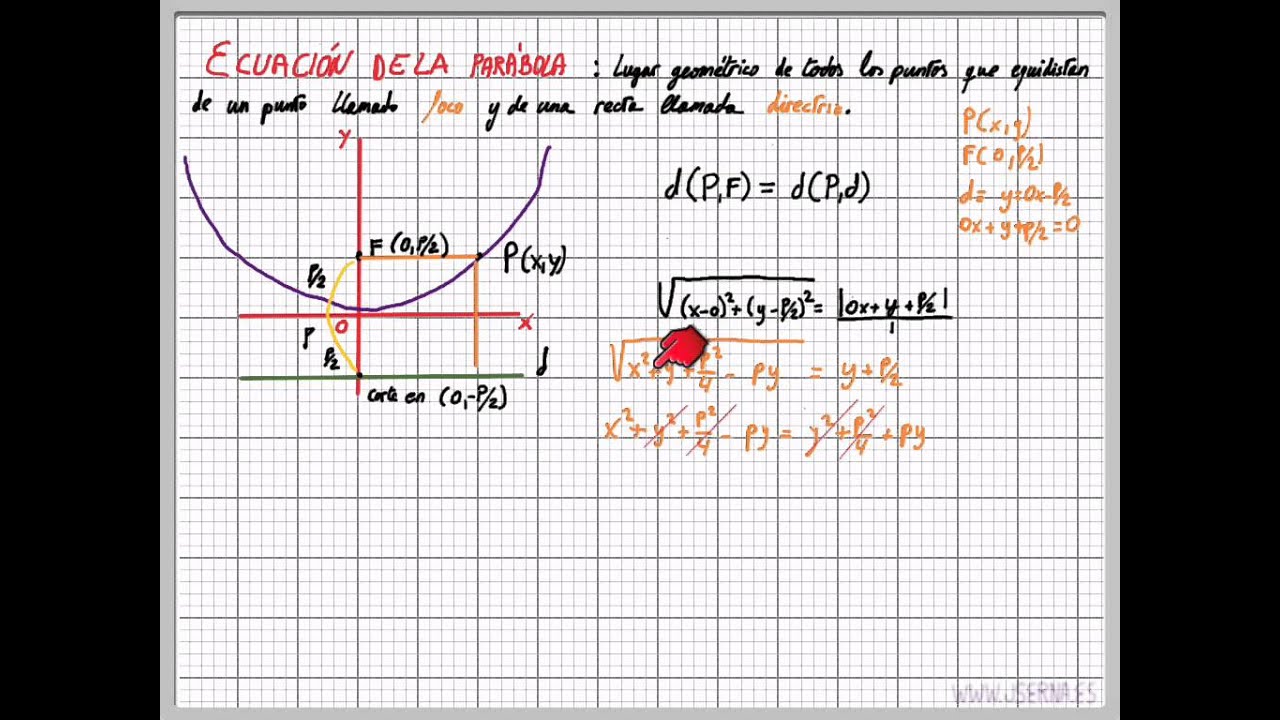 ECUACIÓN DE LA PARÁBOLA : Lugar geométrico de todos los puntos que equidistan
de un punto llamado foco y de una recta llamada directriz.
P(x,y)
F(0,P/2)
d= y=0x-P/2
0x+y+P/2=0
d(P,F) = d(P,d)
Y
F (0,P/2)
P(x,y)
P/2
O
X
P
P/2
d
corte en (0,-P/2)
√(x-0)²+(y-P/2)² = |0x+y+P/2|
1
√x²+y²+P²/4 - py = y+P/2
x²+y²+P²/4 - py = y²+P²/4+py
WWW.JSERNA.ES